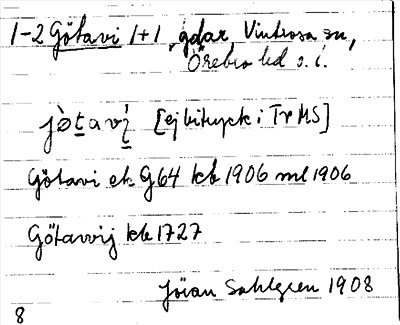 1-2 Götavi 1+1, gdar Vintrosa sn,
Örebro hd o. i.
jòtavi [ej bitryck i TrMS]
Götavi ek G64 kb 1906 ml 1906
Götavvij kb 1727
Jöran Sahlgren 1908
8